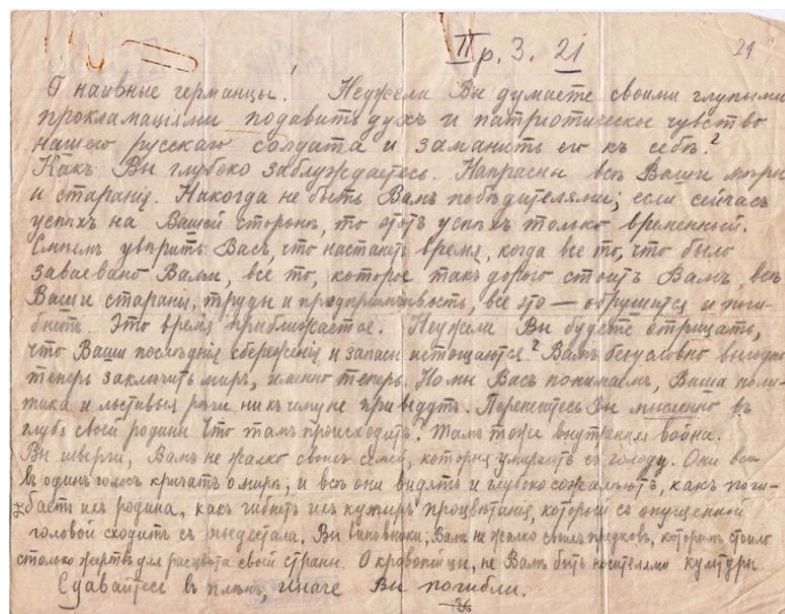 II р. 3. 21
21
О наивные германцы! Неужели Вы думаете своими глупыми
прокламацiями подавить духъ и патриотическое чувство
нашего русскаго солдата и заманить его къ себѣ?
Какъ Вы глубоко заблуждаетесь. Напрасны всѣ Ваши мѣры
и старанiя. Никогда не быть Вамъ побѣдителями; если сейчасъ
успѣхъ на Вашей сторонѣ, то этотъ успѣхъ только временный.
Смѣемъ увѣрить Васъ, что настанетъ время, когда все то, что было
заваевано Вами, все то, которое такъ дорого стоитъ Вамъ, всѣ
Ваши старанiя, труды и предпрiимчивость, все это — обрушится и поги-
бнетъ. Это время приближается. Неужели Вы будете отрицать,
что Ваши послѣднiя сбереженiя и запасы истощаются? Вамъ безусловно выгодно
теперь заключить миръ, именно теперь. Но мы Васъ понимаемъ, Ваша поли-
тика и льстивыя рѣчи ни къ чему не приведутъ. Перенеситесь Вы мысленно въ
глубь своей родины что тамъ происходитъ? Тамъ тоже внутренняя война.
Вы изверги, Вамъ не жалко своихъ семей, которыя умираютъ съ голоду. Они всѣ
въ одинъ голосъ кричатъ о мирѣ, и всѣ они видятъ и глубоко сожалѣютъ, какъ поги-
баетъ ихъ родина, какъ гибнетъ ихъ кумиръ процвѣтанiя, который съ опущенной
головой сходитъ съ пьедестала. Вы виновники; Вамъ не жалко своихъ предковъ, которымъ стоило
столько жертвъ для расцвѣта своей страны. О кровопiйцы, не Вамъ быть носителями культуры.
Сдавайтесь въ плѣнъ, иначе Вы погибли.